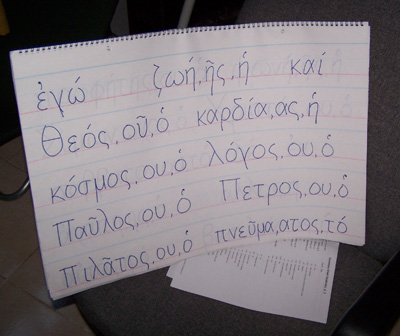 ἐγώ ζωή,ῆς,ἡ καί
Θεός,οῦ,ὁ καρδία,ας,ἡ
κόσμος,ου,ὁ λόγος,ου,ὁ
Παῦλος,ου,ὁ Πετρος,ου,ὁ
Πιλᾶτος,ου,ὁ πνεῦμα,ατος,τό